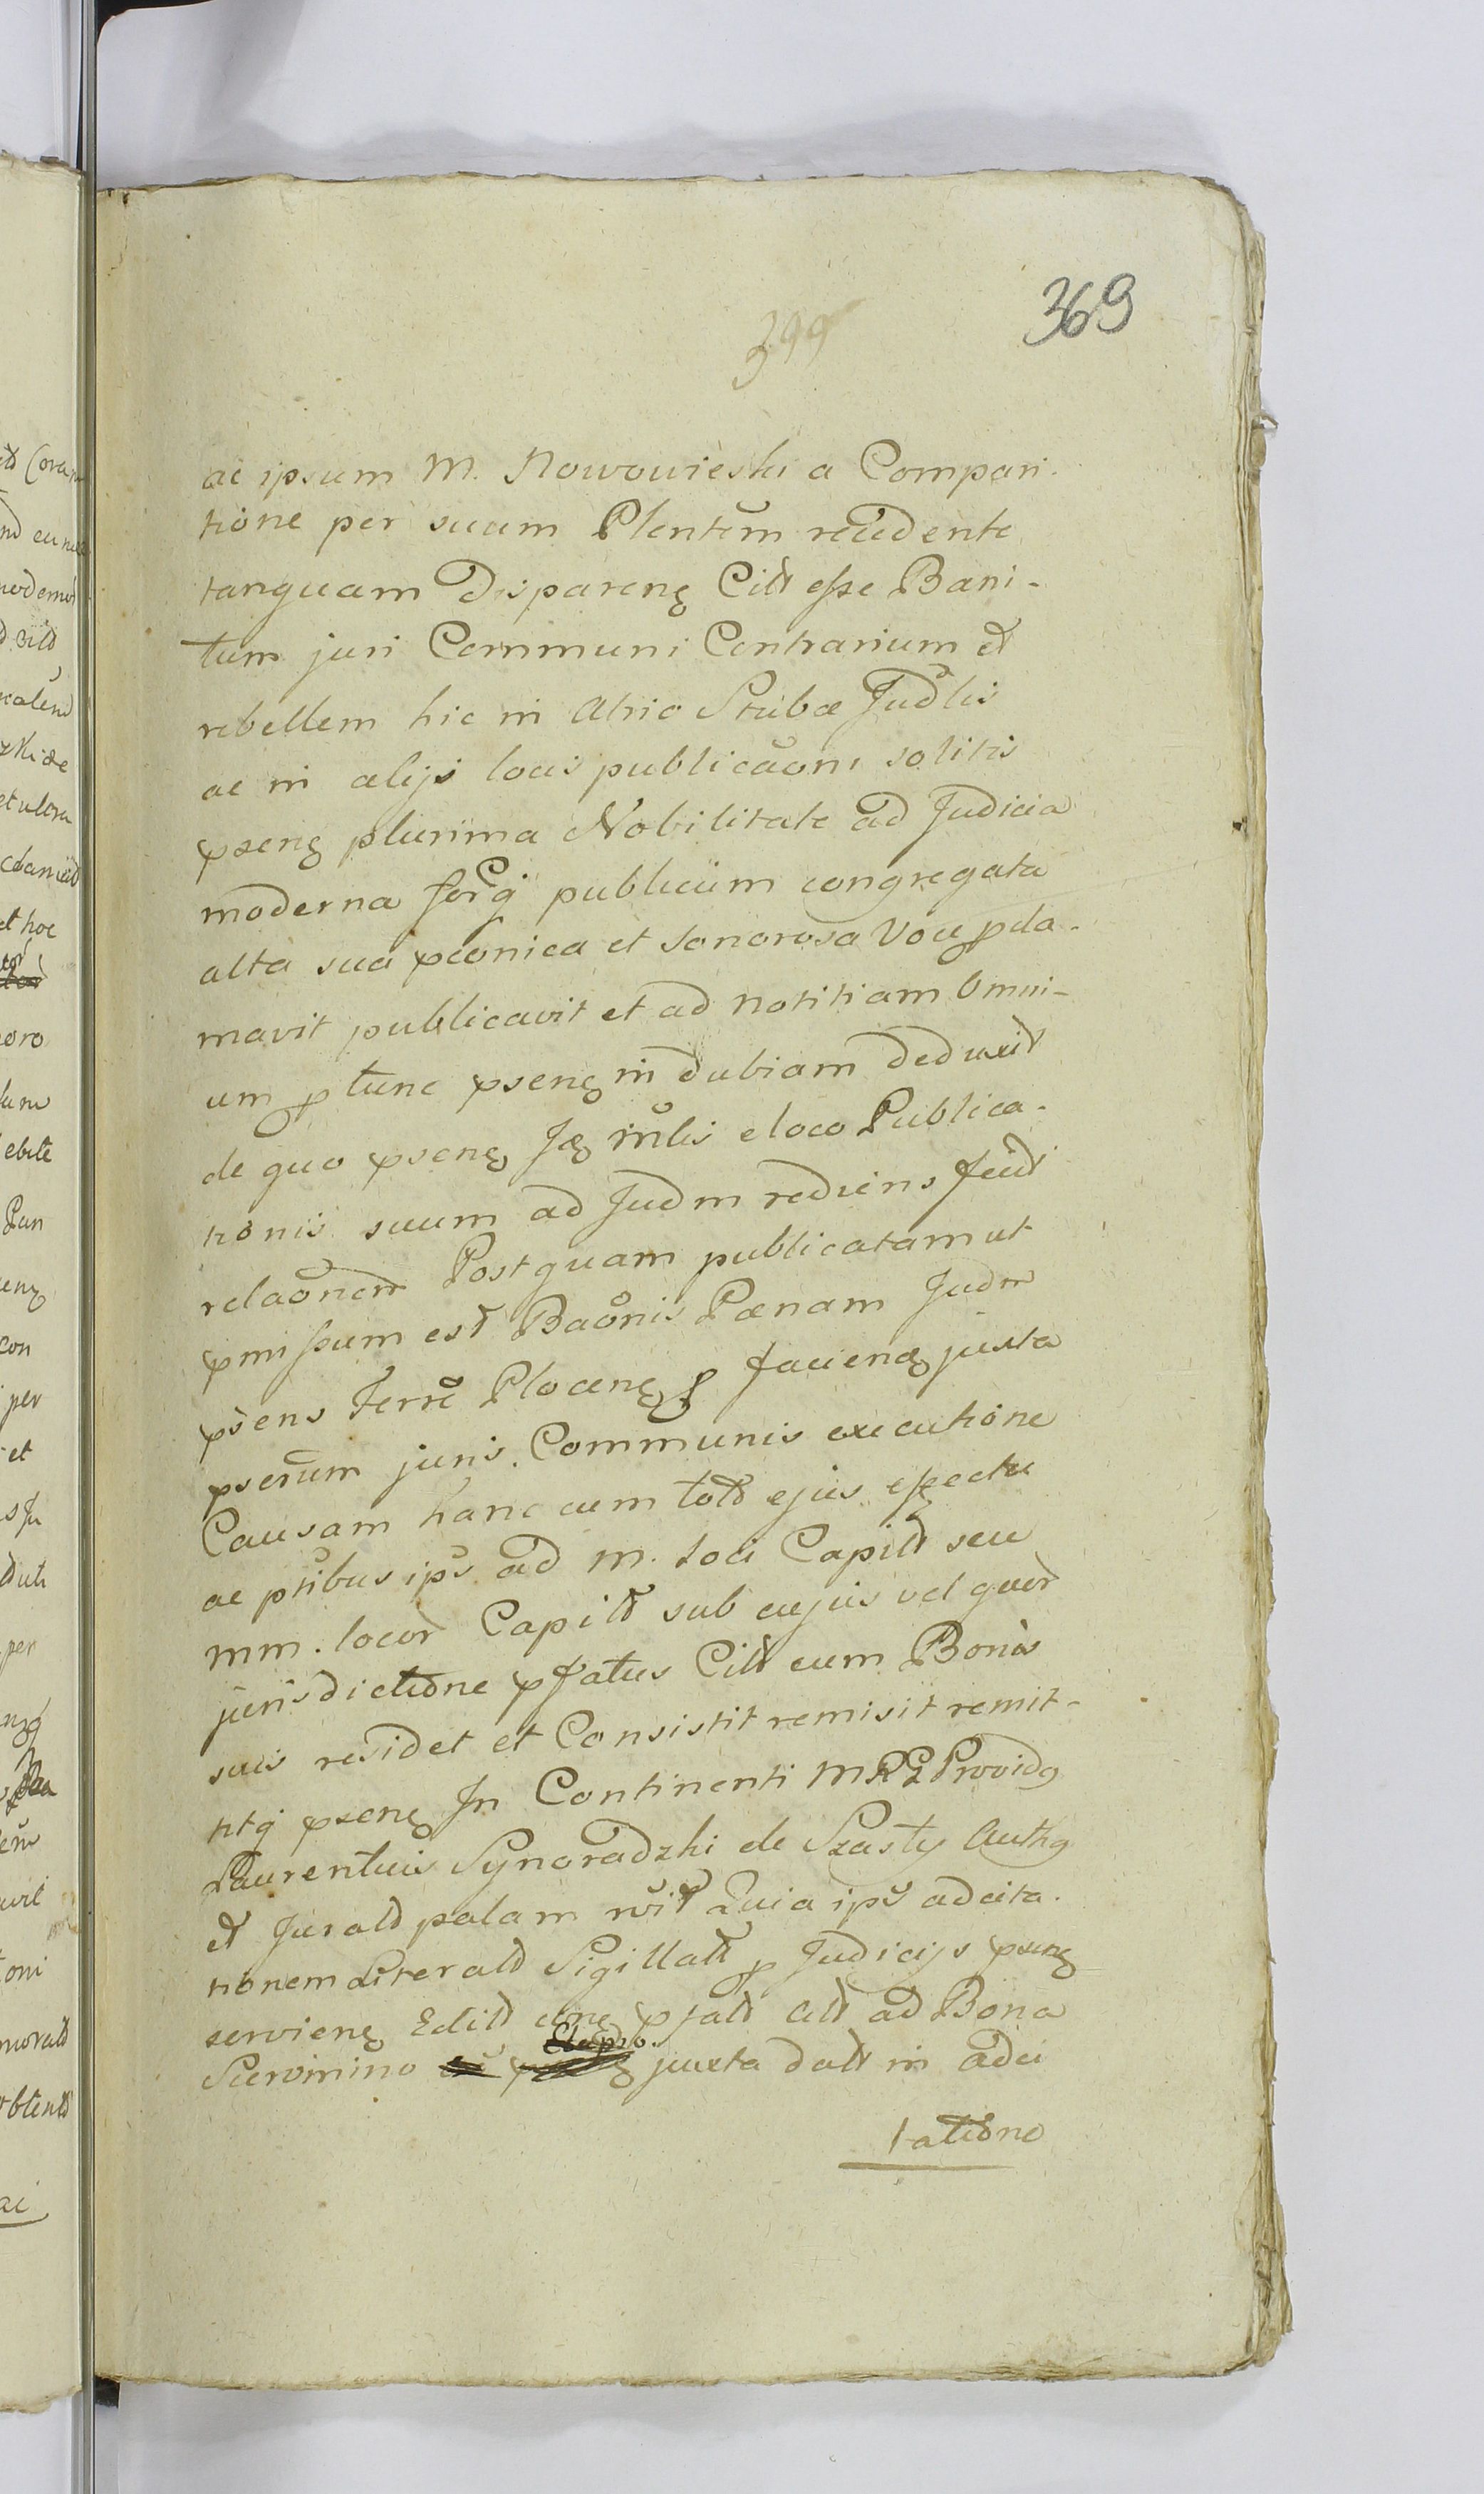 369
399
ac ipsum M. Nowowieski a Compari-
tione per suum Plentem recedente
tanquam Disparenę Citt esse Bani-
tum juri Communi Contrarium et
rebellem hic in Atrio Stubæ Judlis
ac in alijs locis publicaōni solitis
pseng plurima Nobilitate ad Judicia
moderna publicum congregata
alta sua pconica et sonorosa Voce pcla-
mavit publicavit et ad notitiam Omni-
um p tunc psenę indubiam deduxit
de quo psenę mlis e loco Publica-
tionis suum ad Judm rediens fecit
relaōnem Postquam publicatam ut
pmissum est Baōnis Pænam Judm
psens Terre Plocenę faciendę juxta
pserum juris Communis executione
Causam hanc cum toto ejus effectu
ac ptibus ips ad M. Loci Capitt seu
MM. locor Capitt sub cujus vel quor
jurisdictione pfatus Citt cum Bonis
suis residet et Consistit remisit remit-
titq psenę In Continenti MRG Providg
Laurentius Synoradzki de Szasty Authg
et Juratt palam rwit Quia ips adcita-
tionem Literatt Sigillatt p Judicijs psenę
servienę Editt pfatt Citt ad Bona
Sieromino juxta datt in adci
tatione